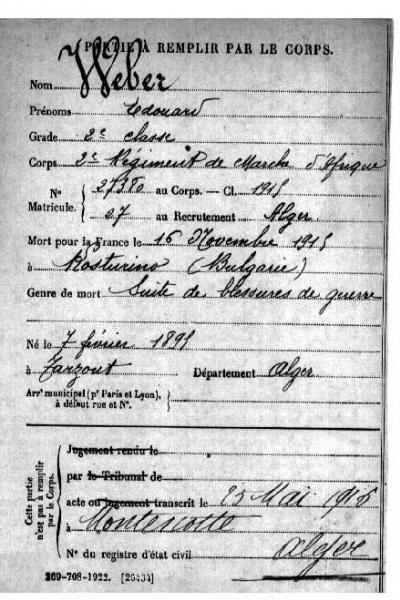 PARTIE À REMPLIR PAR LE CORPS.
Nom Weber
Prénoms Edouard
Grade 2e classe
Corps 2e Régiment de Marche d'Afrique
No Matricule. 27380 au Corps. — Cl. 1915
27 au Recrutement Alger
Mort pour la France le 16 Novembre 1915
à Kosturino (Bulgarie)
Genre de mort Suite de blessures de guerre
Né le 7 février 1895
à Département Alger
Arrt municipal (pr Paris et Lyon),
à défaut rue et No.
Cette partie n'est pas à remplir par le Corps.
Jugement rendu le
par le Tribunal de
acte ou jugement transcrit le 25 Mai 1916
à Montenotte
No du registre d'état civil Alger
209-708-1922. [26434]